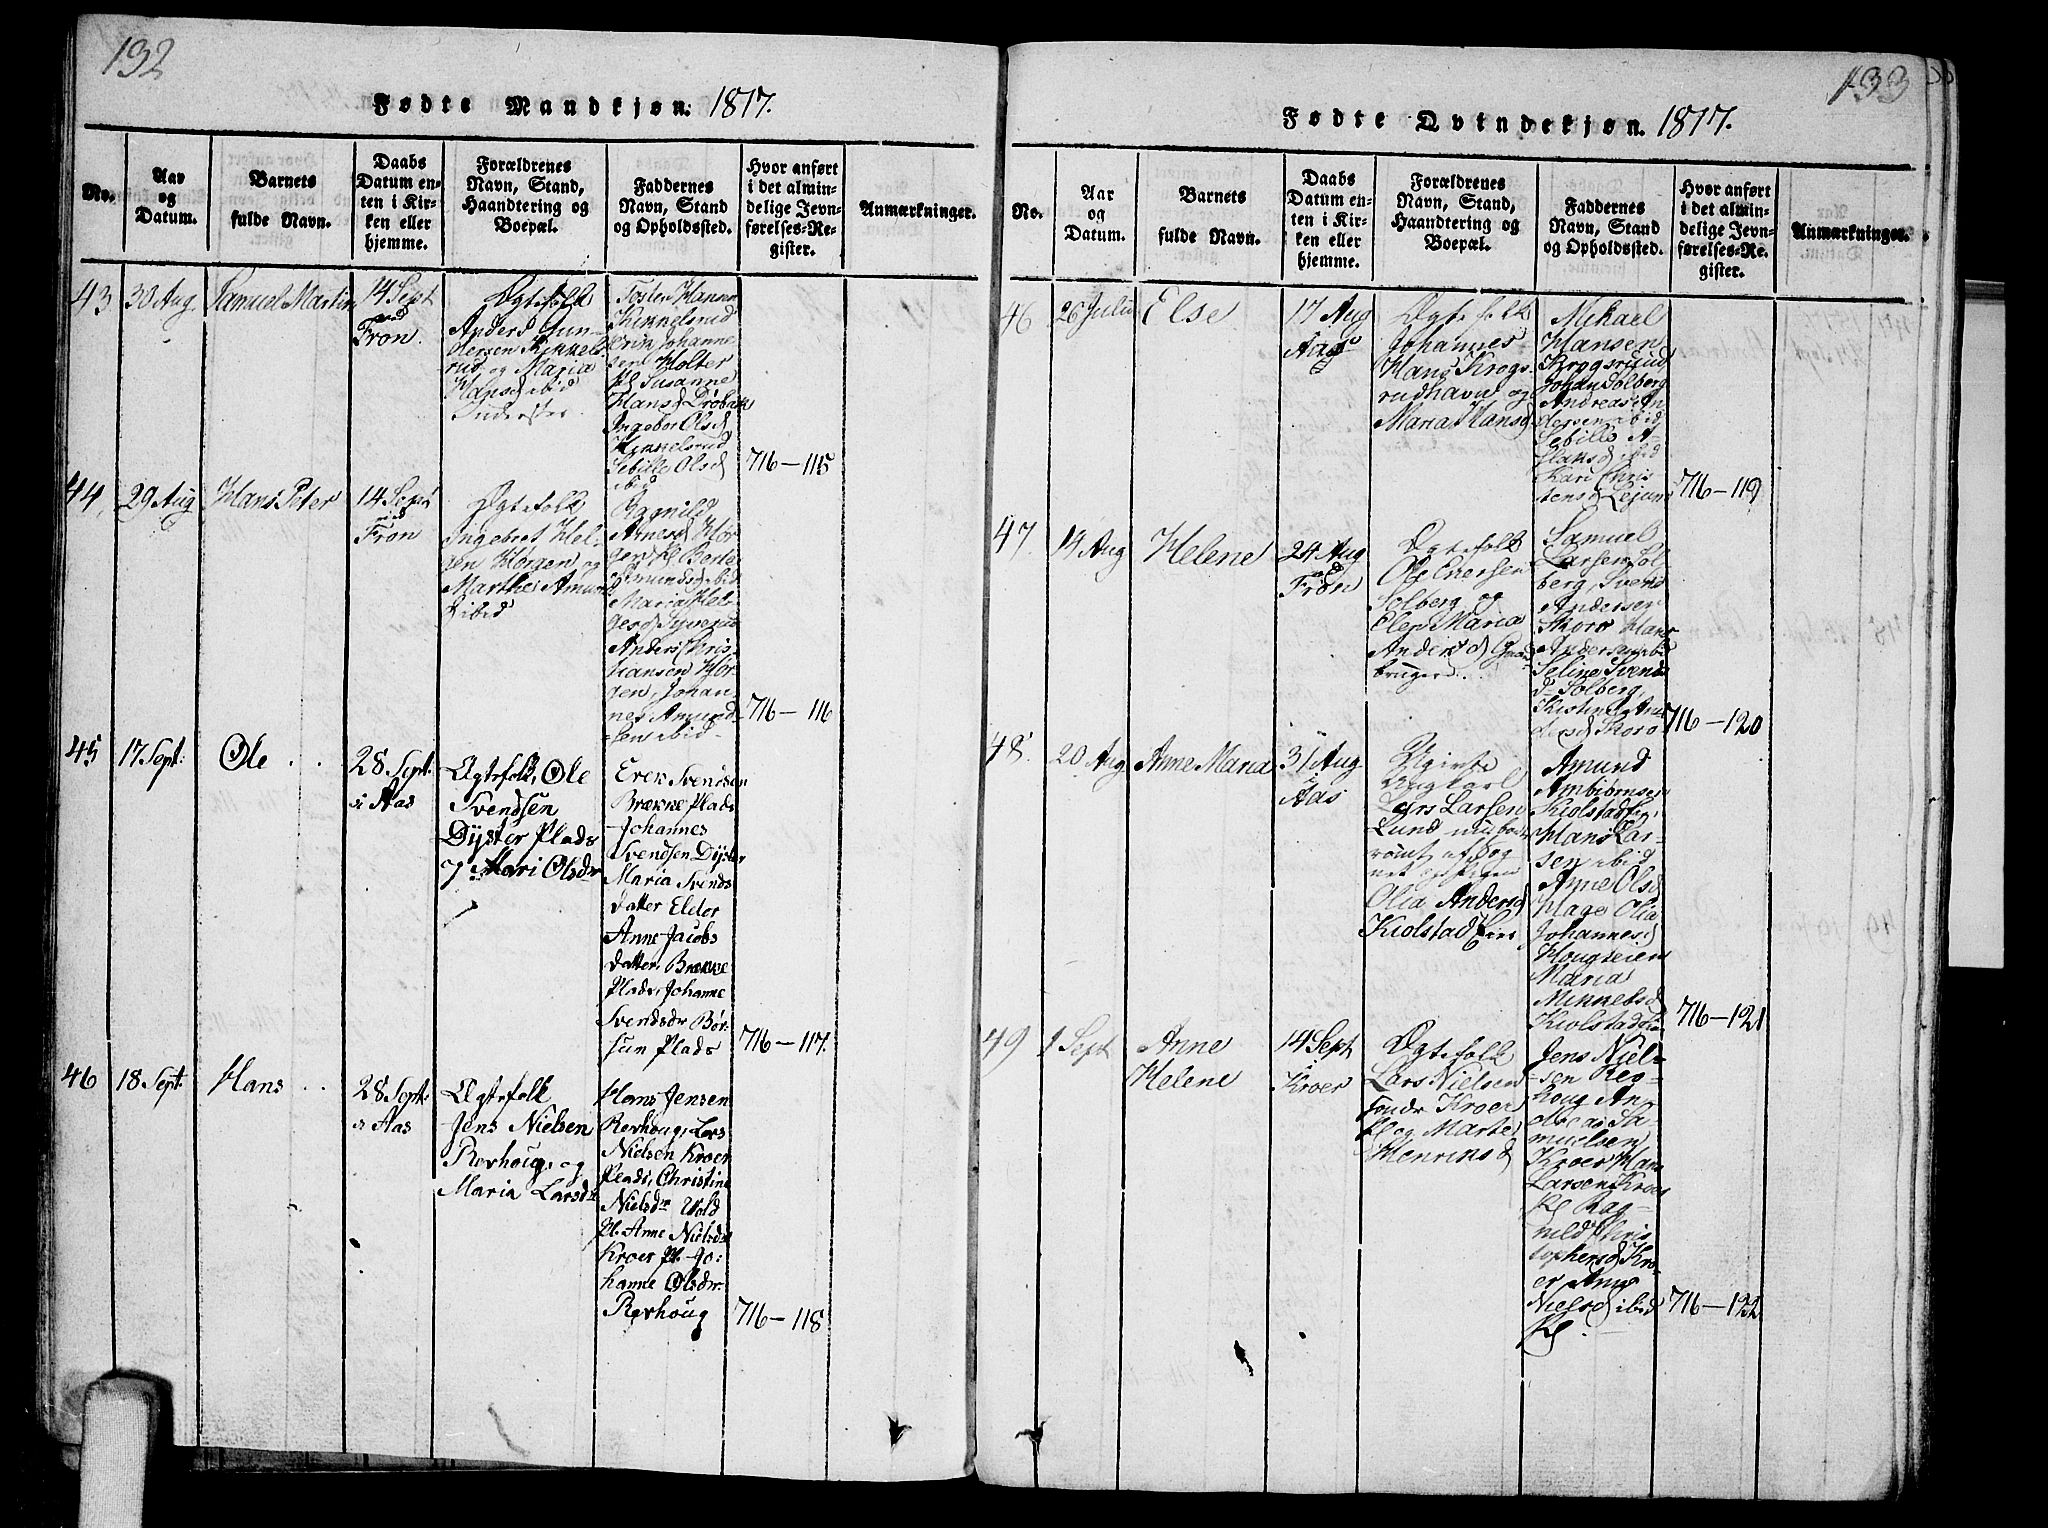 132
Fødte Mandkjøn. 1817.
No.
Aar
og
Datum.
Barnets
fulde Navn.
Daabs
Datum en-
ten i Kir-
ken eller
hjemme.
Forældrenes
Navn, Stand,
Haandtering og
Boepæl.
Faddernes
Navn, Stand
og Opholdssted.
Hvor anført
i det almin-
delige Jevn-
førelses-Re-
gister.
Anmærkninger.
43
30 Aug
Samuel Martin
14 Sept
Fron.
Ægtefolk
Anders Gun-
dersen Kinkels-
rud og Maria
Hansd ibid
Tosten Hansen
Kinkelsrud
Erik Johanne-
sen Holter
Pl Susanne
Hansd Drøbak
Ingebor Olsd
Kinkelsrud
Sebille Olsd
ibid
716-115
44
29 Aug
Hans Peter
14 Sept
Fron
Ægtefolk
Ingebret Hel-
gen Horgen, og
Marthe Amund
ibid
Ragnild
Arnesd Hor-
gen Pl Berte
Amundsd ibid
Maria Hel-
gesd
Anders Chris-
tiansen Hor-
gen, Johan-
nes Amund-
sen ibid
716-116
45
17 Sept:
Ole
28 Sept:
i Aas
Ægtefolk, Ole
Svendsen
Dyster Plads
og Mari Olsdr
Erek Svendsen
Brække Plads
Johannes
Svendsen Dyster
Maria Svends
datter Eldor
Anne Jacobs
datter Brække
Plads, Johanne
Svendsdr Bør-
sun Plads
716-117.
46
18 Sept:
Hans
28 Sept:
i Aas
Ægtefolk
Jens Nielsen
Revhoug, og
Maria Larsdr
Hans Jensen
Revhoug, Lars
Nielsen Kroer
Plads, Christine
Nielsdr Vold
Pl. Anne Nielsdr
Kroer Pl. Jo:
hanne Olsdr.
Revhoug
716-118
133
Fødte Qvindekjøn. 1817.
No.
Aar
og
Datum.
Barnets
fulde Navn.
Daabs
Datum en-
ten i Kir-
ken eller
hjemme.
Forældrenes
Navn, Stand,
Haandtering og
Boepæl.
Faddernes
Navn, Stand
og Opholdssted.
Hvor anført
i det almin-
delige Jevn-
førelses-Re-
gister.
Anmærkninger.
46
26 Julii
Else
17 Aug
Aas
Ægtefolk
Johannes
Hans Krogs-
rudhavn og
Maria Hansd
Mikael
Hansen
Krogsruud
Johan Solberg
Andreas An-
dersen ibid
Sebille
Hansd ibid
Kari Chris
tensd
716-119
47.
14 Aug
Helene
24 Aug
Fron
Ægtefolk
Ole Enersen
Solberg og
Elen Maria
Andersd Gaard
bruger.
Samuel
Larsen Sol-
berg, Svend
Andersen
Skoro Hans
Andersen ibid
Seline Svends
d Solberg,
Kistine An-
dersd Skoro
716-120
48.
20 Aug
Anne Maria
31 Aug
Aas
Ugivte
Ungkarl
Lars Larsen
Lund
Olia Andersd
Kiolstad Ein
Amund
Ambiørnsen
Kiolstad Ein,
Hans Lar-
sen ibid
Anne Olsd
Hage Olia
Johannesd
Hougseien
Maria
Mikkelsd
Kiolstad Ein
716-121
49
1 Sept
Anne
Helene
14 Sept
Kroer
Ægtefolk
Lars Nielsen
Søndr Kroer
Pl og Marte
Henriksd
Jens Niel-
sen Rev-
houg An-
dreas Sa-
muelsen
Kroer Hans
Larsen Kroer
Pl Rag-
nild Chris
tophersd Kro-
er Anne
Nielsd ibid
Pl.
716-122